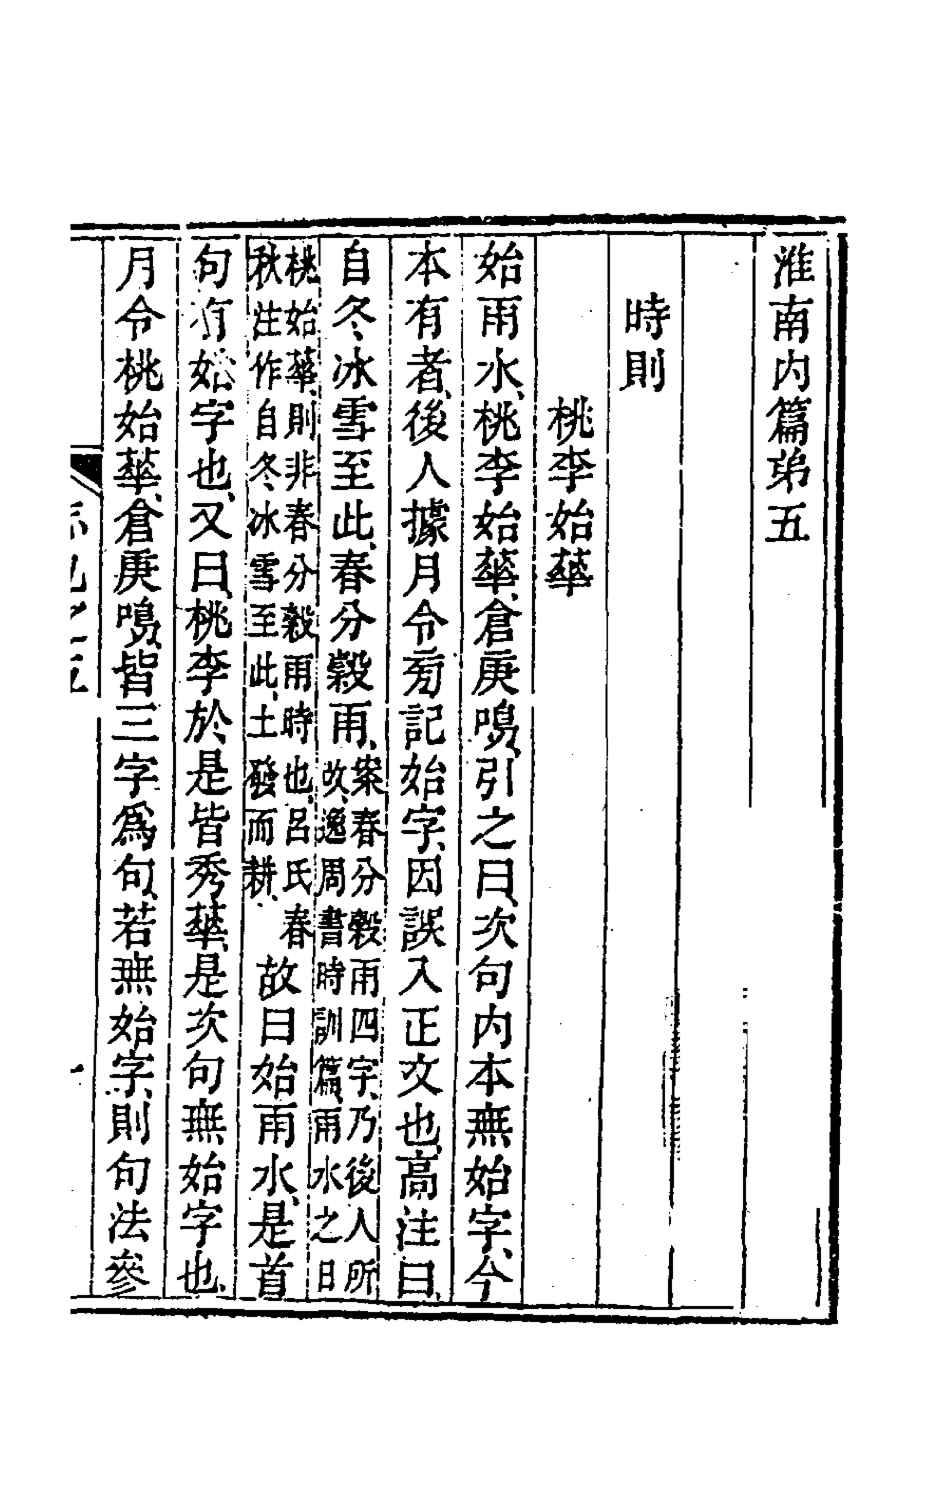 淮南内篇弟五
時則
桃李始華
始雨水、桃李始華、倉庚鳴、引之曰、次句内本無始字、今
本有者、後人據月令菊記始字、因誤入正文也、高注曰、
自冬冰雪至此、春分穀雨、案春分穀雨四字、乃後人所
改、逸周書時訓篇、雨水之日
桃始華、則非春分穀雨時也、呂氏春
秋注作自冬冰雪至此、土發而耕、故曰始雨水、是首
句有始字也、又曰、桃李於是皆秀華、是次句無始字也、
月令桃始華、倉庚鳴、皆三字爲句、若無始字、則句法參